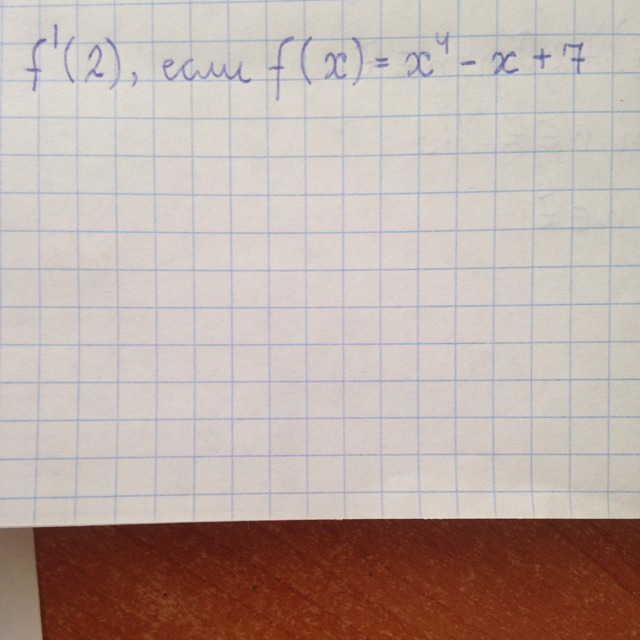 f'(2), если f(x) = x⁴ - x + 7